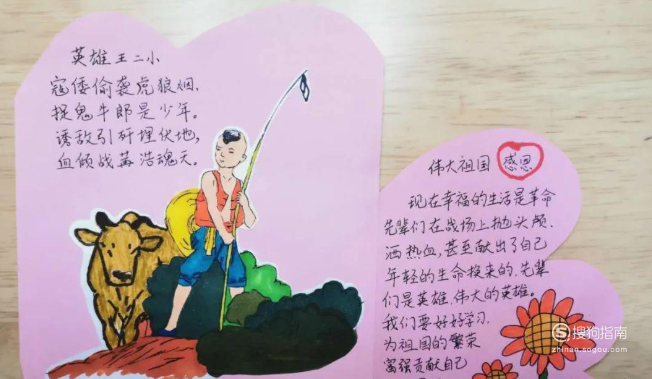 英雄王二小
寇倭偷袭虎狼烟,
捉鬼牛郎是少年。
诱敌引奸埋伏地,
血倾战苒浩魂天.
伟大祖国 感恩
现在幸福的生活是革命
先辈们在战场上抛头颅.
洒热血,甚至献出了自己
年轻的生命换来的.先辈
们是英雄.伟大的英雄.
我们要好好学习.
为祖国的繁荣
富强贡献自己
搜狗指南
zhinan.sogou.com